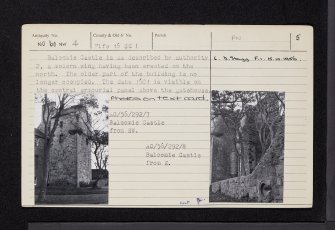 Antiquity No.
County & Old 6" No.
Parish
NO 60 NW 4
Fife 16 SE
5
Balcomie Castle is as described by authority
2, a modern wing having been erected on the
north. The older part of the building is no
longer occupied. The date 1601 is visible on
the central armorial panel above the gatehouse.
Photos on Text card.
AO/56/292/7
Balcomie Castle
from SW.
AO/56/292/8
Balcomie Castle
from E.